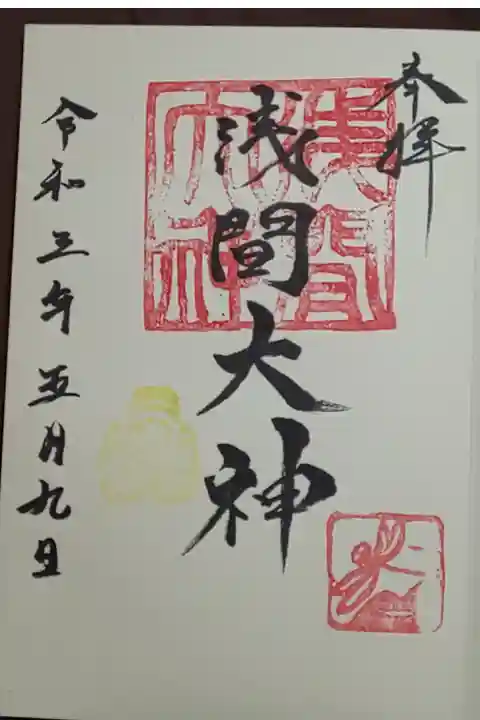 奉拝
浅間大神
令和三年五月九日
浅間
大神